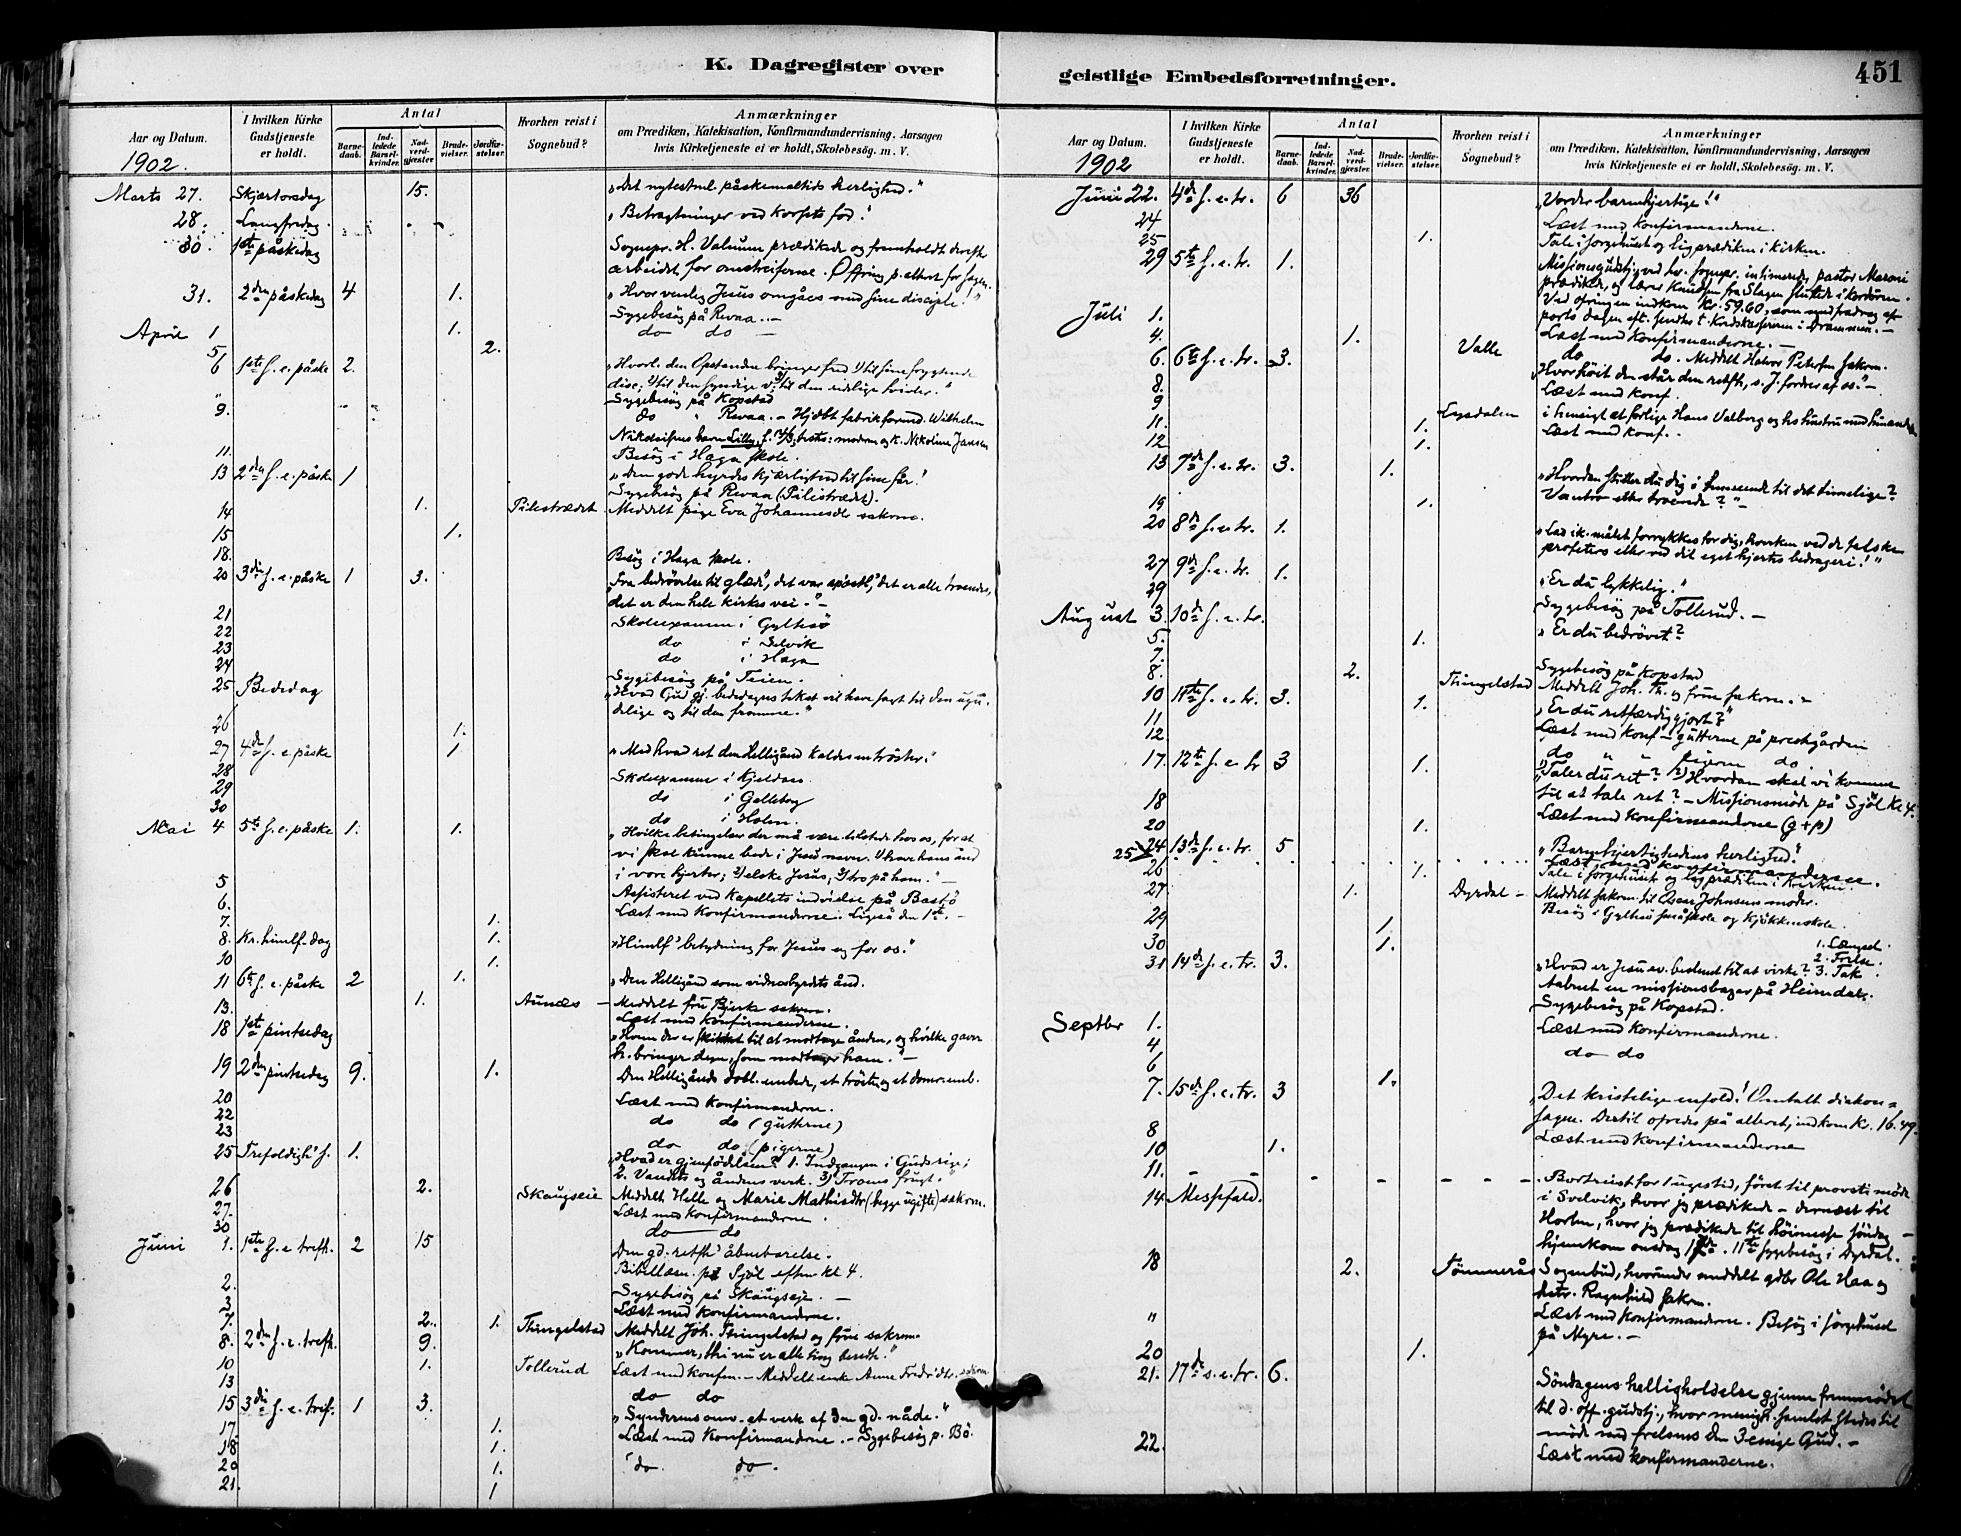 K. Dagregister over
Aar og Datum.
1902.
I hvilken Kirke Gudstjeneste er holdt.
Antal
Barnedaab.
Indledede Barselkvinder.
Nadverdgjester
Brudevielser.
Jordfæstelser.
Hvorhen reist i Sognebud?
Anmærkninger
om Prædiken, Katekisation, Konfirmandundervisning, Aarsagen
hvis Kirketjeneste ei er holdt, Skolebesøg. m. V.
Marts 27. Skjærtorsdag 15. "Det nytestml. påskemaltids herlighed."
28. Langfredag "Betragtninger ved korsets fod."
30. 1ste påskedag Sognepr. H. Valeum prædikede og fremholdt derefter
arbeidet for omstreiferne. Ofring p. alteret for sagen.
31. 2den påskedag 4 1. "Hvor venlig Jesus omgåes med sine disciple."
Sygebesög på Revaa. -
April 1 1. do do -
5 2.
6 1ste s. e. påske 2. "Hvorl. den Opstandne bringer fred 1) til sine frygtende
disc; 2) til den syndige v; 3) til den ridlige tvivler."
Sygebesög på Kopstad
9. do " Revaa. - Hjdöbt fabrikformd. Wilhelm
barn Lilly, modern og K. Nikoline Jansen
11. Besög i Haga skole.
13 2den s. e. påske 1 "Den gode hyrdes kjærlighed til sine får."
Sygebesög på Revaa (Pilestrædet).
14 1. Pilestrædet - Meddelt pige Eva Johannesdtr sakrm.
15 1.
18. Besög i Haga skole.
20 3die s. e. påske 1 3. "Fra bedrövelse til glæde", det var apostl., det er alle troendes,
det er den hele kirkes vei." -
21 Skoleexamen i Gylteső
22 do i Selvik
23 do i Haga
24 Sygebesög på Teien.
25 Bededag "Hvad Gud gj. bededagens tekst vil have sagt til den ugu-
delige og til den fromme."
26 1.
27 4de s. e. påske 1 "Med hvad ret den Helligånd kaldes en tröster."
28 Skoleexamen i Kjeldaas
29 do i Galleberg
30 do i Holm.
Mai 4 5te s. e. påske 1. 1. "Hvilke betingelser der må være tilstede hos os, for at
vi skal kunne bede i Jesu navn. 1) have hans ånd
i vore hjerter; 2) elske Jesus; 3) tro på ham." -
5 Assisteret ved Kapellets indvielse på Bastö
6. Læst med Konfirmanderne. Ligeså den 1ste. -
7. 1.
8. Kr. himlf. dag 1. "Himlf.s betydning for Jesus og for os."
10 1.
11 6te s. e. påske 2 1. "Den Helligånd som vidnesbyrdets ånd.
13. 1. Aunæs - Meddelt fru Bjerke sakrm.
Læst med konfirmanderne.
18 1ste pintsedag "Hvem der er skikket til at modtage ånden, og hvilke gaver
h. bringer dem, som modtager ham." -
19 2den pintsedag 9. 1. Den Helligånds dobl. embede, et tröste- og et domr. emb.
20 Læst med Konfirmanderne.
22 do do (gutterne)
23 do do (pigerne)
25 Trefoldigh. s. 1. "Hvad er gjenfödelsen? 1. Indgangen i Guds rige;
2. Vandets og åndens verk. 3) Troens frugt."
26 2. Skaugseie Meddelt Helle og Marie Mathisdtr (begge ugifte) sakrm.
27. Læst med konfirmanderne.
30 do do
Juni 1. 1ste s. e. trefh. 2 15 Den gd. retfh.s åbenbarelse.
Bibellæsn. på Sjöl eftm. kl 4.
2. Sygebesög på Skaugseje. -
3. Læst med konfirmanderne.
7. 2. 1. Thingelstad Meddelt Joh. Thingelstad og frue sakrm.
8. 2den s. e. trefh. 9. "Kommer, thi nu er alle ting beredte."
10 1. Tollerud Læst med konfm. - Meddelt enke Anne Fredr'dtr. sakrm.
13 do do
15 3die s. e. tref. 1 3. "Synderens omv. et verk af den gd. nåde."
17. 1. Læst med Konfirmanderne. - Sygebesög p. Bö.
18 1.
20 1. do do.
21. 1
geistlige Embedsforretninger.
451
Aar og Datum.
1902
I hvilken Kirke Gudstjeneste er holdt.
Antal
Barnedaab.
Indledede Barselkvinder.
Nadverdgjester.
Brudevielser.
Jordfæstelser.
Hvorhen reist i Sognebud?
Anmærkninger
om Prædiken, Katekisation, Konfirmandundervisning, Aarsagen
hvis Kirketjeneste ei er holdt, Skolebesøg. m. V.
Juni 22. 4de s. e. tr. 6 36 "Vorder barmhjertige!"
24 Læst med Konfirmanderne.
25 1. Tale i sorgehuset og ligprædiken i kirken.
29 5te s. e. tr. 1. Missionsgudstj. ved hr. sognepr. intimerede, pastor Maroni
prædikede, og lærer Knudsen fra Slagen sluttede i kordören.
Ved ofringen indkom kr. 59.60, som med fradrag af
porto dagen eft. sendtes t. Kredskassereren i Drammen. -
Juli 1. Læst med Konfirmanderne. -
4. 1. Valle do do. Meddelt Halvor Petersen sakrm.
6. 6te s. e. tr. 3. "Hvor höit den står den retfh., s. J. fordrer af os." -
8. Læst med Konf.
9 Lysdalen i hensigt at forlige Hans Valberg og hs hustru med hinanden
11. 1. Læst med Konf. -
12 1.
13 7de s. e. tr. 3. 1. "Hvordan stiller du dig i henseende til det timelige?
Vantro eller troende?" -
19 1.
20 8de s. e. tr. 1. "Lad ik. målet forrykkes for dig, hverken ved de falske
profeters eller ved dit eget hjertes bedrageri!"
27 9de s. e. tr. 1. "Er du lykkelig."
29 Sygebesög på Tollerud. -
August 3. 10de s. e. tr. "Er du bedrövet?
5. 1.
7. Sygebesög på Kopstad
8. 2. Thingelstad Meddelt Joh. Th. og frue sakrm. -
10 11te s. e. tr. 3. 1. "Er du retfærdiggjort?"
11. Læst med Konf - gutterne på prestgården
12 do " " pigerne do.
17. 12te s. e. tr 3 1. 1) "Taler du ret? 2) Hvordan skal vi komme
til at tale ret? - Missionsmöde på Sjöl kl 4.
18 Læst med Konfirmanderne (g + p)
20 1.
24 13de s. e. tr. 5 "Barmhjertighedens herlighed."
25 Læst med konfirmanderne.
26 1. Tale i sorgehuset og ligprædiken i kirken.
27 1. Dyrdal - Meddelt sakrm. til Oscar Johnsens moder.
29 1. Besög i Gylteső småskole og kjøkkenskole.
30 1.
31 14de s. e. tr. 3. "Hvad er Jesu ev. bestemt til at virke? 1. Længsel. 2. Frelse. 3. Tak.
Aabnet en missionsbazar på Heimdal.
Septbr 1. Sygebesög på Kopstad.
4 Læst med Konfirmanderne.
6 do do
7. 15de s. e. tr. 3 1. "Det kristelige enfold! Omtalt diakon-
sagen. Dertil ofredes på alteret, indkom kr. 16.49.
8 Læst med Konfirmanderne
10 1.
11. - - - - - - - Bortreist for 1 ugestid, först til provstimöde
14 Messefald. i Svelvik, hvor jeg prædikede - dernæst til
Horten, hvor jeg prædikede til höimesse söndag -
hjemkom onsdag 17de. 11te sygebesög i Dyrdal.
18 2. Tömmerås Sognebud, hvorunder meddelt gdbr Ole Haa og
hstr. Ragnhild sakrm.
" Læst med Konfirmanderne. Besög i sörgehuset
på Myre. -
20 1.
21. 17de s. e. tr. 6. Söndagens helligholdelse gjenm. fremmödet
til d. off. gudstj., hvor menigh. samlet stedes til
möde med frelsens den 3enige Gud. -
22. Læst med konfirmanderne.